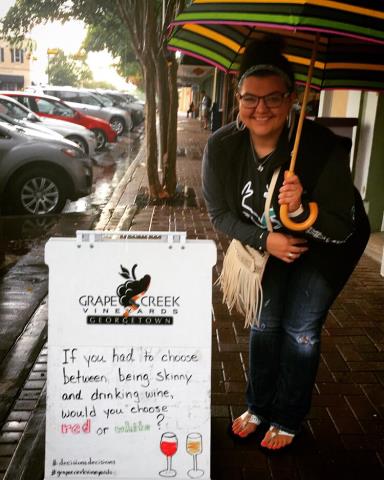 GRAPE CREEK
VINEYARDS
GEORGETOWN
If you had to choose
between being skinny
and drinking wine,
would you choose
red or white?
#decisionsdecisions
#grapecreekvineyards